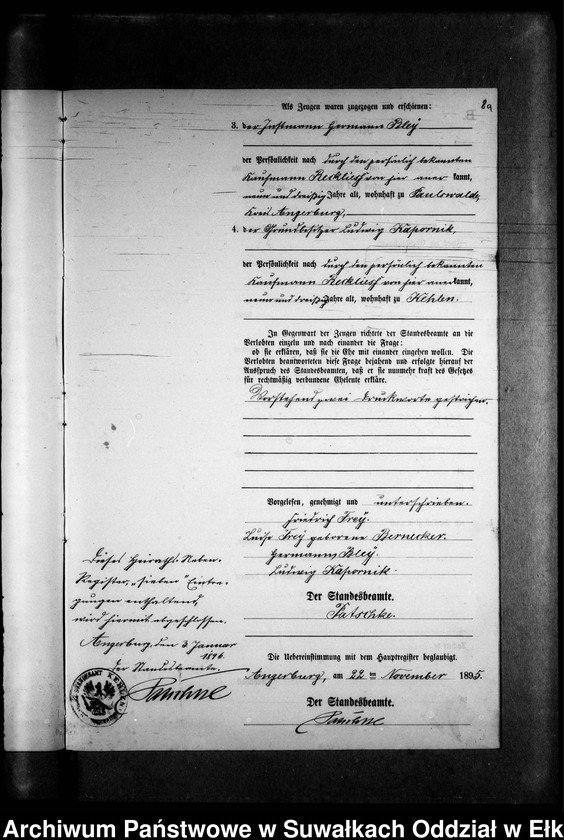 8a
Als Zeugen waren zugezogen und erschienen:
3. der Instmann Hermann Bley
der Persönlichkeit nach durch den persönlich bekannten
Kaufmann Reckliess von hier aner kannt,
neun und dreißig Jahre alt, wohnhaft zu Paulswalde,
Kreis Angerburg,
4. der Grundbesitzer Ludwig Kapornik
der Persönlichkeit nach durch den persönlich bekannten
Kaufmann Reckliess von hier anerkannt,
neun und dreißig Jahre alt, wohnhaft zu Kehlen.
In Gegenwart der Zeugen richtete der Standesbeamte an die
Verlobten einzeln und nach einander die Frage:
ob sie erklären, daß sie die Ehe mit einander eingehen wollen. Die
Verlobten beantworteten diese Frage bejahend und erfolgte hierauf der
Ausspruch des Standesbeamten, daß er sie nunmehr kraft des Gesetzes
für rechtmäßig verbundene Eheleute erkläre.
Vorstehend zwei Druckworte gestrichen.
Vorgelesen, genehmigt und unterschrieben.
Friedrich Frey.
Luise Frey geborene Bernecker.
Hermann Bley.
Ludwig Kapornik.
Der Standesbeamte.
Patschke.
Die Uebereinstimmung mit dem Hauptregister beglaubigt.
Angerburg, am 22 ten November 1895.
Der Standesbeamte.
Dieses Heiraths-Neben-
Register, "sieben" Eintra-
gungen enthaltend,
wird hiermit abgeschlossen.
Angerburg, den 3 Januar
1896.
Der Standesbeamte.
Archiwum Państwowe w Suwałkach Oddział w Ełk